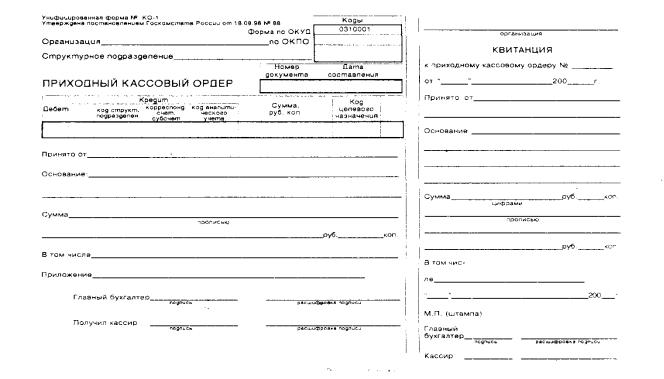 Унифицированная форма № КО-1
Утверждена постановлением Госкомстата России от 18.08.98 № 88
Коды
Форма по ОКУД 0310001
Организация по ОКПО
Структурное подразделение
Номер документа
Дата составления
ПРИХОДНЫЙ КАССОВЫЙ ОРДЕР
Дебет
Кредит
код структ. подразделен
корреспонд счет, субсчет
код аналити- ческого учета
Сумма, руб. коп
Код целевого назначения
Принято от
Основание:
Сумма
прописью
руб. коп.
В том числе
Приложение
Главный бухгалтер
подпись
расшифровка подписи
Получил кассир
подпись
расшифровка подписи
организация
КВИТАНЦИЯ
к приходному кассовому ордеру №
от "___" 200__г
Принято от
Основание
Сумма руб. коп.
цифрами
прописью
руб. коп.
В том чис-
ле
"___" 200
М.П. (штампа)
Главный
бухгалтер
подпись
расшифровка подписи
Кассир